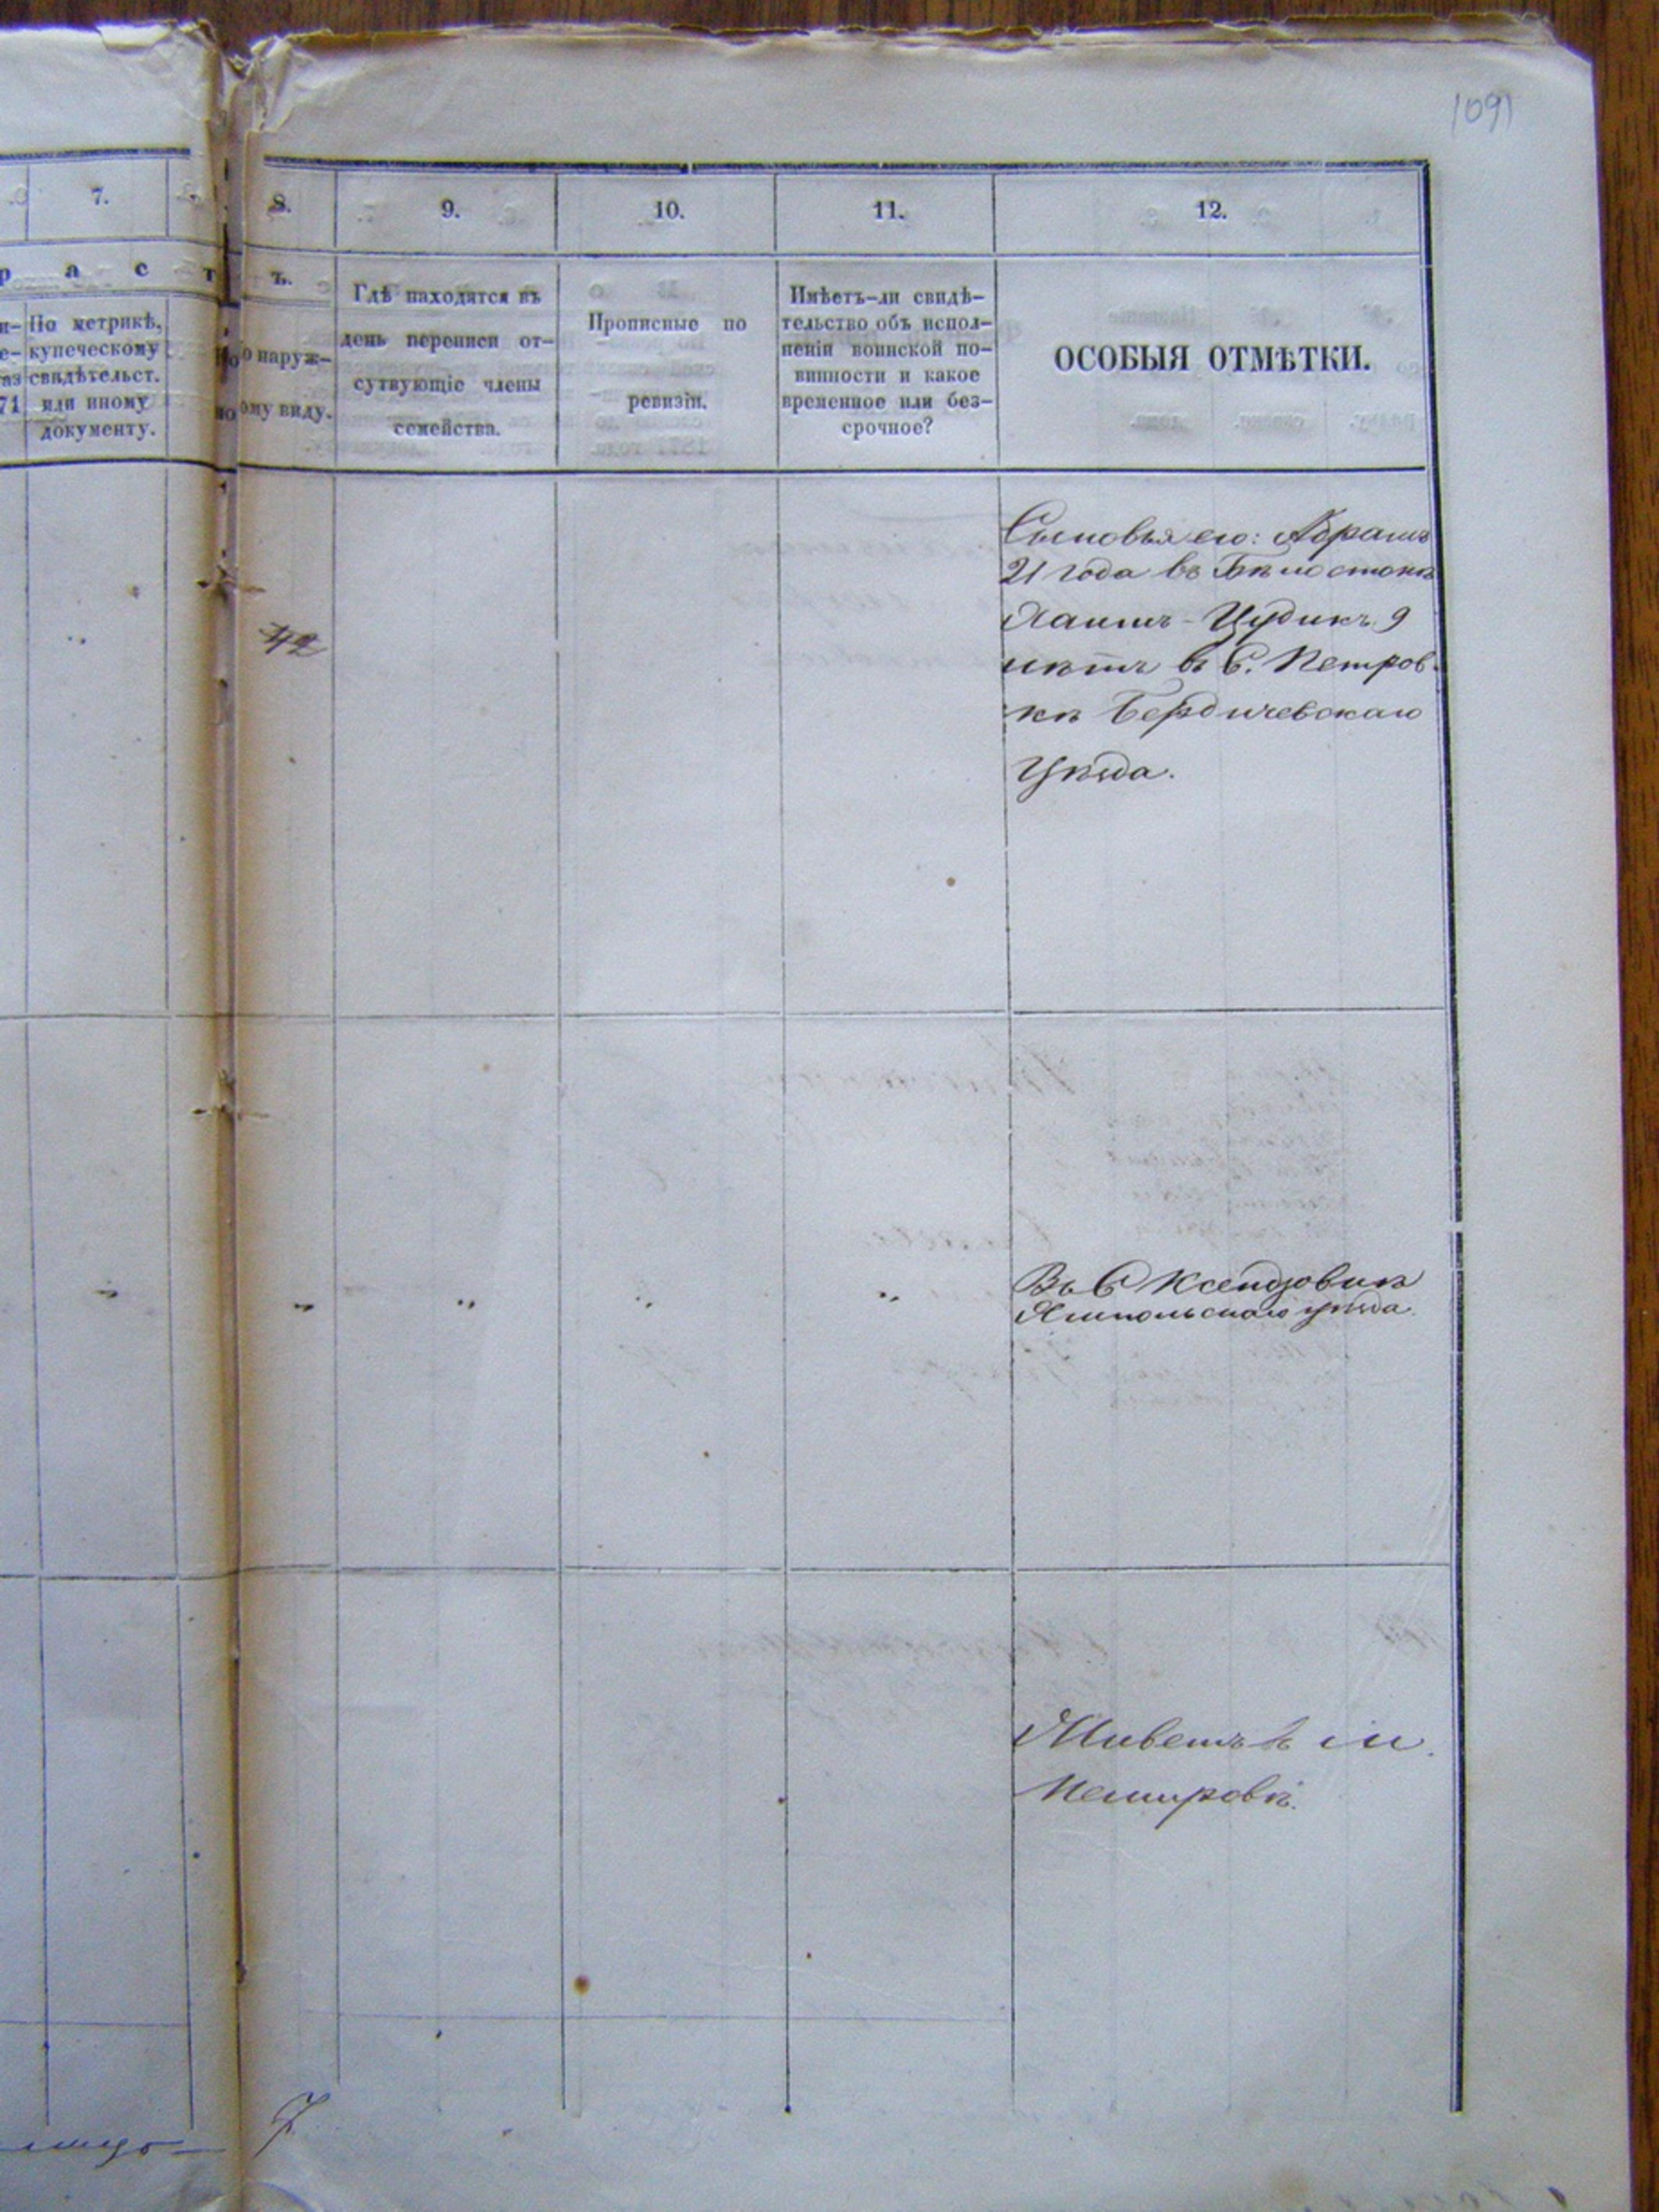 1091
7.
8.
9.
10.
11.
12.
р а с т ъ.
По метрикѣ,
купеческому
свидѣтельст.
или иному
документу.
о наруж-
ому виду.
Гдѣ находятся въ
день переписи от-
сутвующіе члены
семейства.
Прописные по
ревизіи.
Имѣетъ-ли свидѣ-
тельство объ испол-
неніи воинской по-
винности и какое
временное или без-
срочное?
ОСОБЫЯ ОТМѢТКИ.
42
Сыновья его: Абрамъ
21 года въ Бѣлостокѣ
Хаимъ-Цудикъ 9
лѣтъ въ С. Петров-
кѣ Бердичевскаго
Уѣзда.
Въ С Ксендзовкѣ
Ямпольскаго уѣзда.
Живетъ въ м.
Немировѣ.